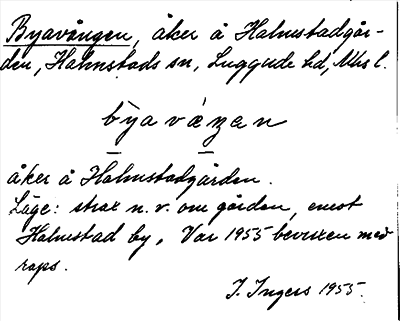 Byavången, åker å Halmstadgår-
den, Halmstads sn, Luggude hd, Mhs l.
bya vàŋen
åker å Halmstadgården.
Läge: strax n.v. om gården, emot
Halmstad by. Var 1955 bevuxen med
raps.
I. Ingers 1955.